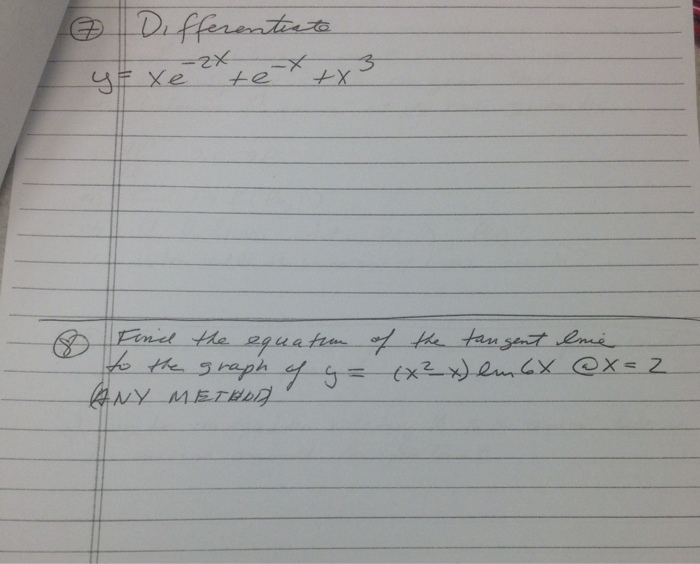 ⑦ Differentiate
y = xe^-2x + e^-x + x^3
⑧ Find the equation of the tangent line
to the graph of y = (x²-x) ln 6x @ x = 2
(ANY METHOD)